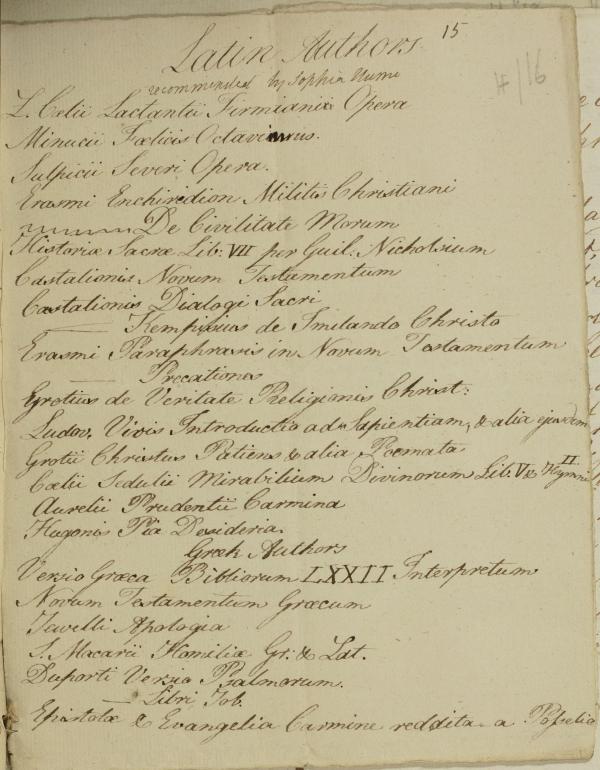 15
Latin Authors
recommended by Sophia Hume
# / 16
L. Cœlii Lactantii Firmianii Opera
Minucii Fœlicis Octavius.
Sulpicii Severi Opera.
Erasmi Enchiridion Militis Christiani
De Civilitate Morum
Historiæ Sacræ Lib. VII per Guil. Nicholsium
Castalionis Novum Testamentum
Castalionis Dialogi Sacri
Kempisius de Imitando Christo
Erasmi Paraphrasis in Novum Testamentum
Precationes
Grotius de Veritate Religionis Christ:
Ludov. Vivis Introductio ad Sapientiam, & alia ejusdem
Grotii Christus Patiens & alia Poemata
Cœlii Sedulii Mirabilium Divinorum Lib. V & Hymni II
Aurelii Prudentii Carmina
Hugonis Pia Desideria.
Greek Authors
Versio Græca Bibliorum LXXII Interpretum
Novum Testamentum Græcum
Juvelli Apologia
S. Macarii Homiliæ Gr. & Lat.
Duporti Versio Psalmorum.
Libri Job.
Epistolæ & Evangelia Carmine reddita a Posselio